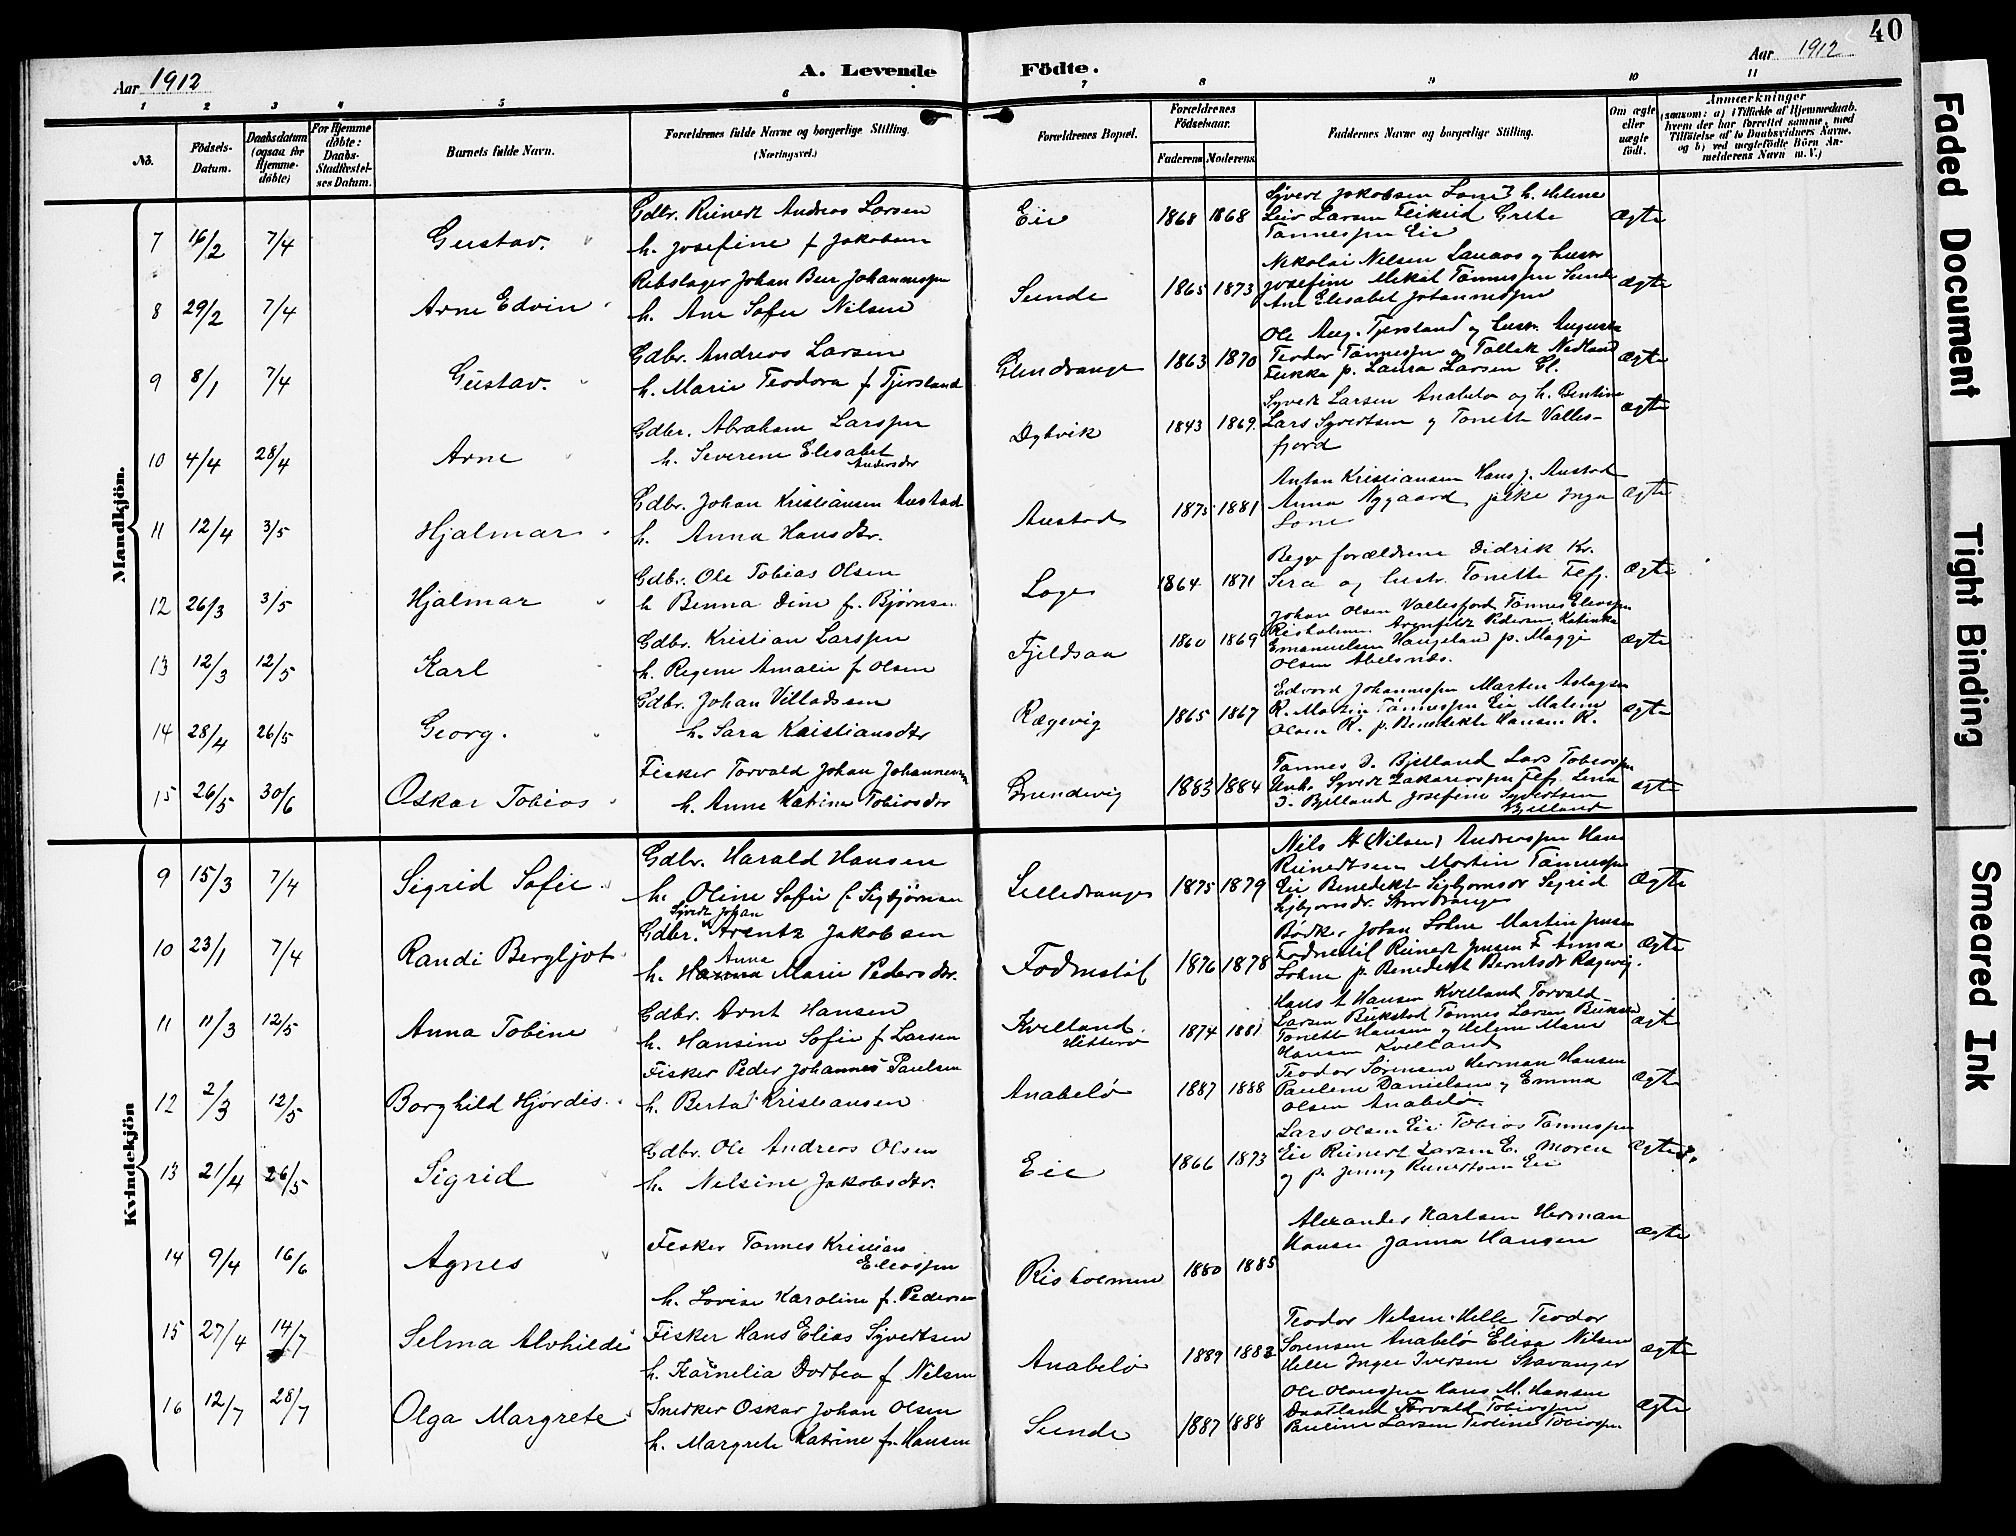 40
Aar 1912
A. Levende
Födte.
Aar 1912
1 2 3 4 5 6 7 8 9 10 11
No.
Födsels-Datum.
Daabsdatum (ogsaa for Hjemme-döbte)
For Hjemme döbte: Daabs-Stadfæstel-ses Datum.
Barnets fulde Navn.
Forældrenes fulde Navne og borgerlige Stilling.
(Næringsvei.)
Forældrenes Bopæl.
Forældrenes Födselsaar.
Faderens Moderens
Faddernes Navne og borgerlige Stilling.
Om ægte eller uægte födt.
Anmærkninger
(saasom: a) i Tilfælde af Hjemmedaab, hvem der har forrettet samme, med Tilföielse af to Daabsvidners Navne, og b) ved uægtefödte Börn An-melderens Navn m. V.)
Mandkjön.
7 16/2 7/4 Gustav.
Gdbr. Reinert Andreas Larsen
h. Josefine f Jakobsen
Eie 1868 1868
Syvert Jakobsen Lone h. Helene
Leiv Larsen Feikvid Grete
Tønnespn Eie
ægte
8 29/2 7/4 Arne Edvin
Rebslager Johan Beer Johannespn
h. Ane Sofie Nilsen
Sunde 1865 1873
Nikolai Nilsen Lauaas og hustr
Josefine Mikal Tønnespn Sunde
Ane Elisabet Johannespn
ægte
9 8/1 7/4 Gustav.
Gdbr. Andreas Larsen
h. Marie Teodora f Tjersland
Glendrange 1863 1870
Ole Aug. Tjersland og hustr. Augusta
Teodor Tønnespn og Tallak Nedland
Fekka p. Laura Larsen Gl.
ægte
10 4/4 28/4 Arne
Gdbr. Abraham Larspn
h. Severene Elesabet
Andersdtr
Dybvik 1843 1869.
Syvert Larsen Anabelø og h. Bentine
Lars Syvertsen og Tonette Valles-
fjord
ægte
11 12/4 3/5 Hjalmar
Gdbr. Johan Kristiansen Austad
h. Anna Hansdtr.
Austad 1875 1881
Anton Kristiansen Hans J. Austad
Anna Nygaard pike Inga
Lone
ægte
12 26/3 3/5 Hjalmar
Gdb. Ole Tobias Olsen
h Benna Dine f. Bjørnsen
Loge 1864 1871
Begge forældrene Didrik Kr.
Sira og hustr. Tonette Flef.
ægte
13 12/3 12/5 Karl
Gdbr. Kristian Larspn
h. Regine Amalie f Olsen
Fjeldsaa 1860 1869
Johan Olsen Vallesfjord Tønnes Eliaspn
Risholmen Arenfeldt Pedersen Katinka
Emanuelsen Haugeland p. Maggi
Olsen Abelsnæs.
ægte
14 28/4 26/5 Georg.
Gdbr. Johan Villadsen
h. Sara Kristiansdtr
Rægevig 1865 1867
Edvard Johannespn Marten Aslagsen
R. Martin Tønnespn Eie Malene
Olsen R. p. Benedikte Hansen R.
ægte
15 26/5 30/6 Oskar Tobias
Fisker Torvald Johan Johannessen
h. Anne Katrine Tobiasdtr
Grundevig 1883 1884
Tønnes J. Bjelland Lars Tobiaspn
Unk. Syvert Zakariaspn Flef. Lina
J. Bjelland Josefine Syvertsen
Bjelland
ægte
Kvindekjön
9 15/3 7/4 Sigrid Sofie
Gdbr. Harald Hansen
h. Oline Sofie f Sigbjørnsen
Lilledrange 1875 1879
Nils A (Nilsen) Anderspn Hans
Reinertsen Martin Tønnespn
Eie Benedikte Sigbjørnsdr Sigrid
Sigbjørnsdr. Stordrange
ægte
10 23/1 7/4 Randi Bergljot
Syvert Johan
Gdbr. Arentz Jakobsen
Anna
h. Hanna Marie Pedersdtr.
Fodnestøl 1876 1878
Bødker Johan Lohne Martin Jensen
Fodnestøl Reinert Jensen F Anna
Lohne p. Benedikte Berntsdr Rægevig.
ægte
11 11/3 12/5 Anna Tobine
Gdbr. Arnt Hansen
h. Hansine Sofie f Larsen
Kvelland.
Hitterø
1874 1881
Hans A Hansen Kvelland Torvald
Larsen Bukstad Tønnes Larsen Bukstad
Tonette Hansen og Helene Marie
Hansen Kvelland
ægte
12 2/3 12/5 Borghild Hjørdis.
Fisker Peder Johannes Paulsen
h. Berta Kristiansen
Anabelø 1887 1888
Teodor Sørensen Herman Hansen
Pauline Danielsen og Emma
Olsen Anabelø.
ægte
13 21/4 26/5 Sigrid
Gdbr. Ole Andreas Olsen
h. Nelsine Jakobsdtr.
Eie 1866 1873
Lars Olsen Eie Tobias Tønnespn
Eie Reinert Larsen E. Moren
og p. Jenny Reinertsen Eie
ægte
14 9/4 16/6 Agnes
Fisker Tønnes Kristian
Eliaspn
h. Lovise Karoline f. Pedersen
Risholmen 1880 1885
Alexander Karlsen Herman
Hansen Janna Hansen
ægte
15 27/4 14/7 Selma Alvhilde
Fisker Hans Elias Syvertsen
h. Kornelia Dortea f Nilsen
Anabelø 1889 1883
Teodor Nelsen Helle Teodor
Sørensen Anabelø Elisa Nilsen
Helle Inger Iversen Stavanger
ægte
16 12/7 28/7 Olga Margrete
Snedker Oskar Johan Olsen
h. Margrete Katrine f. Hansen
Sunde 1887 1888
Ole Olauspn Hans M. Hansen
Daatland Torvald Tobiaspn
Pauline Larsen Teoline Tobiaspn
ægte
Faded Document
Tight Binding
Smeared Ink